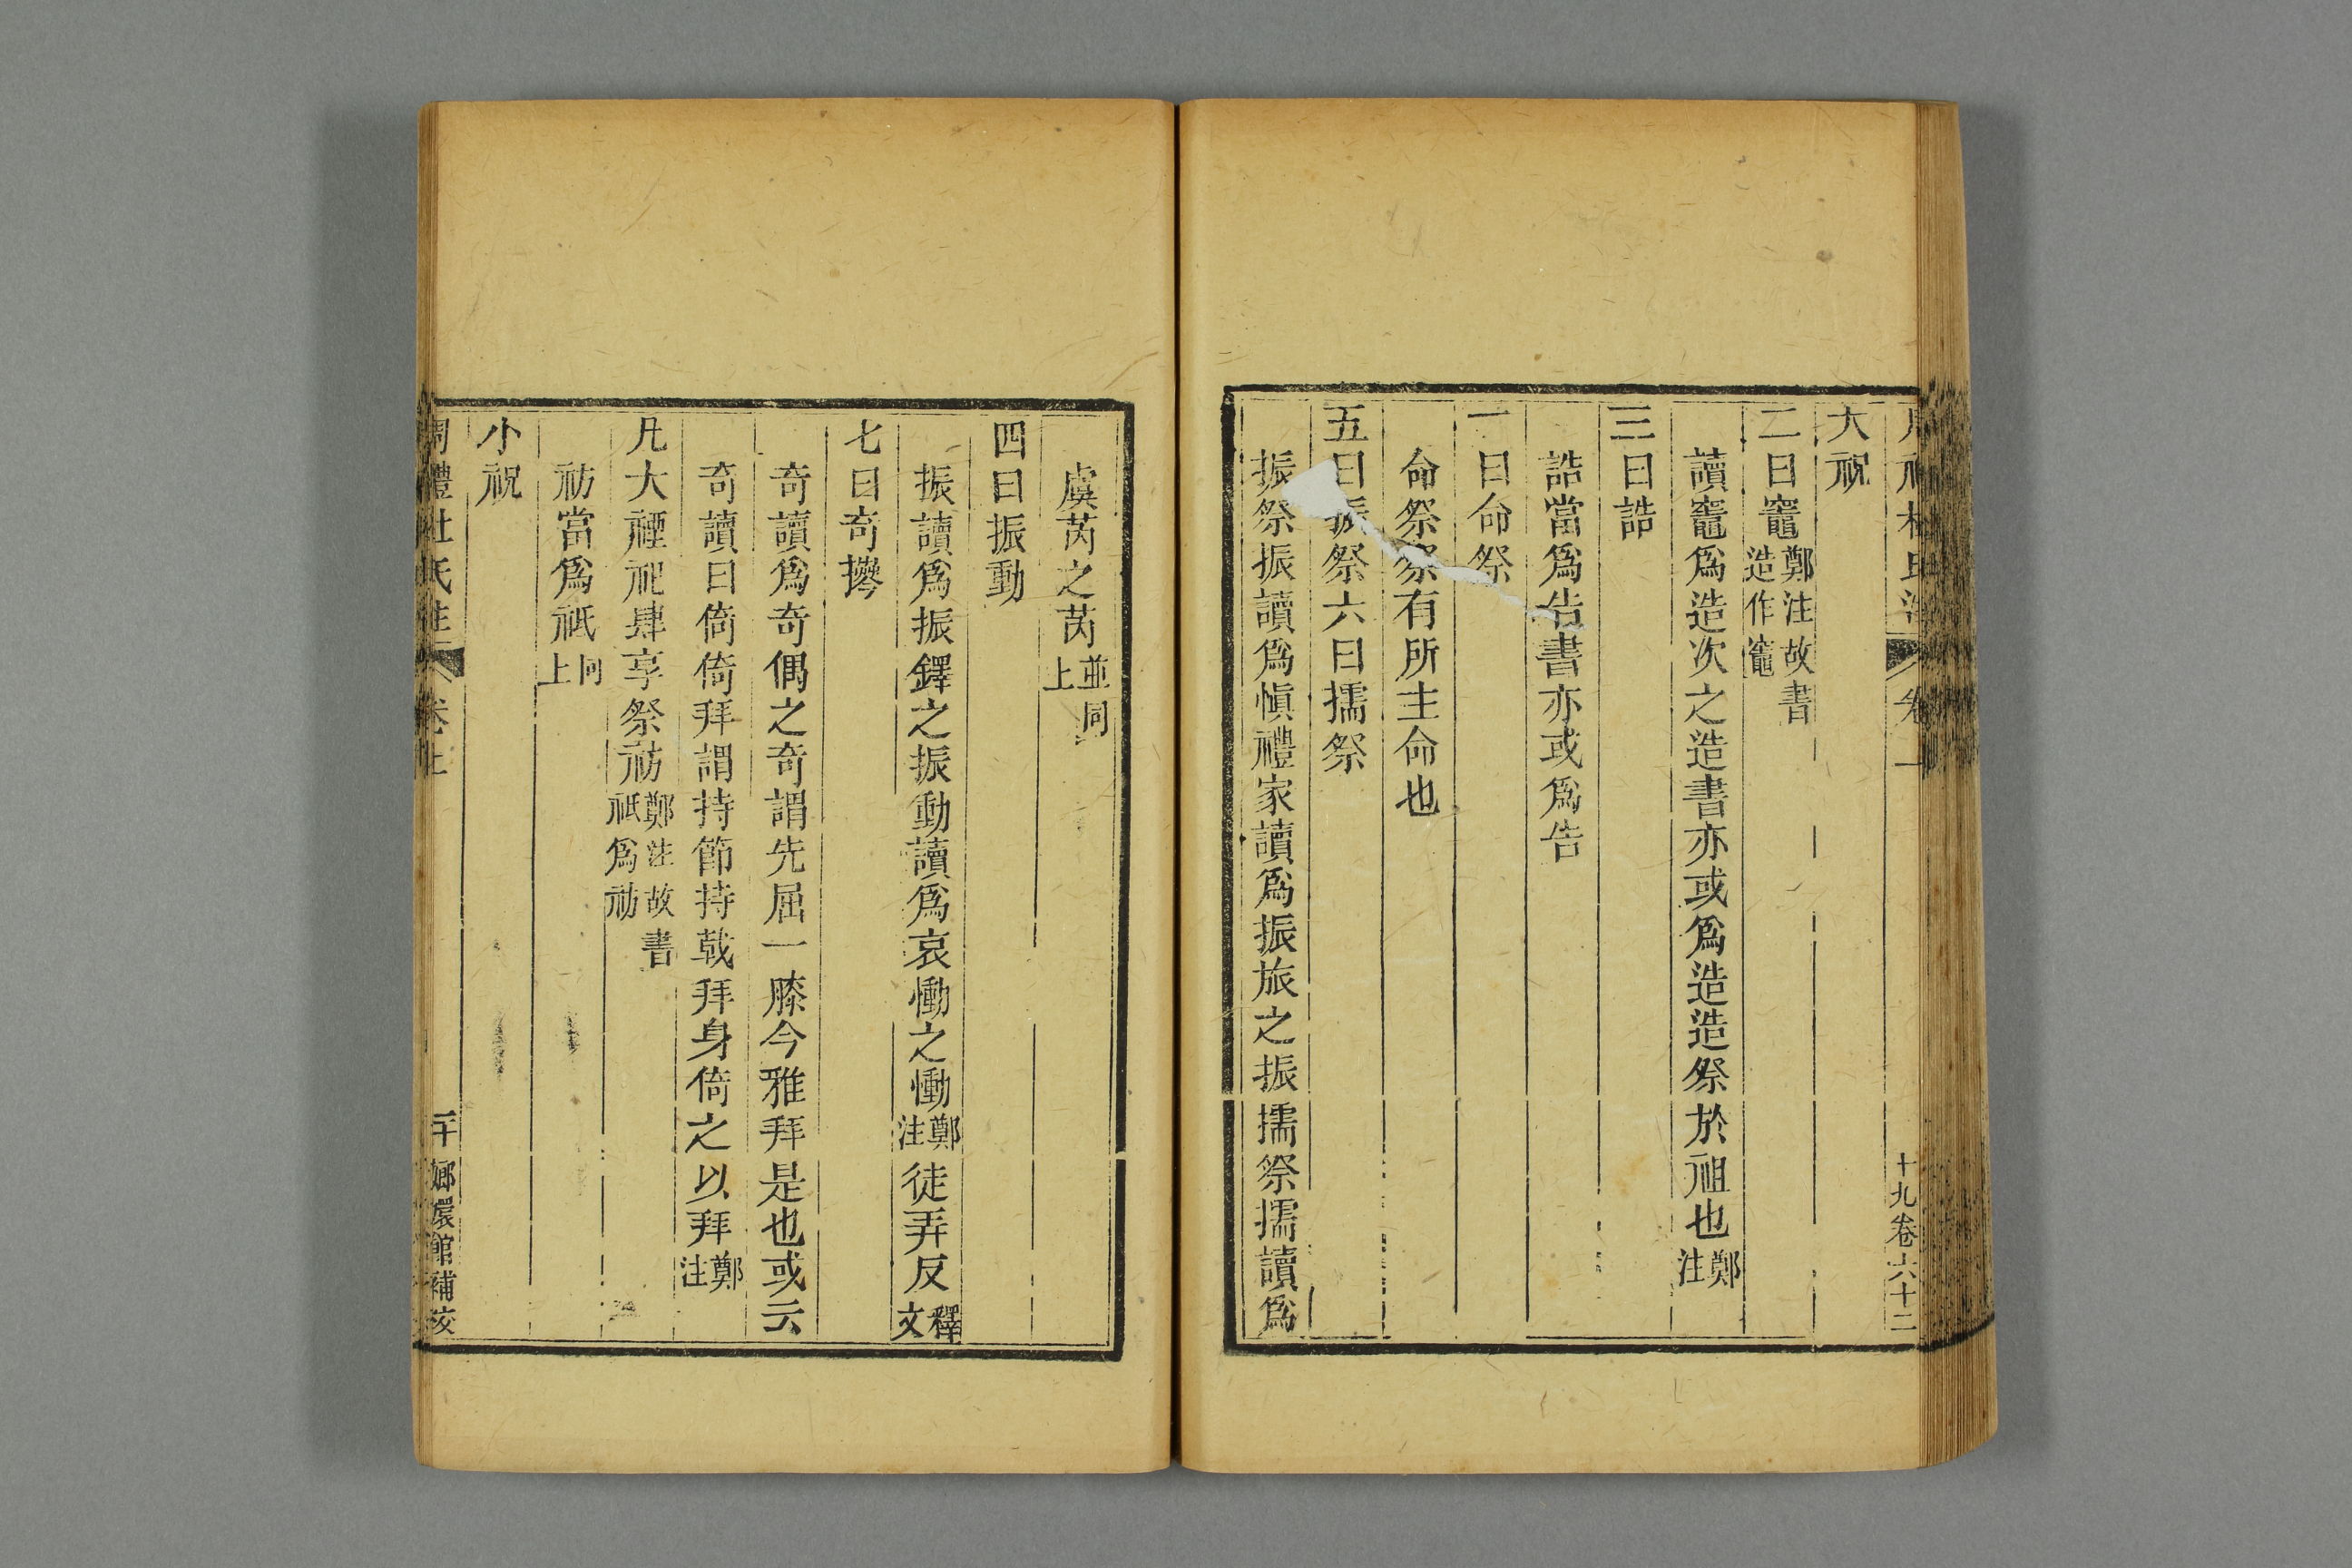 大祝
二曰竈鄭注故書造作竈
讀竈爲造次之造書亦或爲造造祭於祖也鄭注
三曰誥
誥當爲告書亦或爲告
一曰命祭
命祭祭有所主命也
五曰振祭六曰擩祭
振祭振讀爲愼禮家讀爲振旅之振擩祭擩讀爲
十九卷六十二
虞芮之芮並同上
四曰振動
振讀爲振鐸之振動讀爲哀慟之慟鄭注徒弄反釋文
七曰奇㩒
奇讀爲奇偶之奇謂先屈一膝今雅拜是也或云
奇讀曰倚倚拜謂持節持戟拜身倚之以拜鄭注
凡大禋祀肆享祭祊鄭注故書祇爲祊
祊當爲祇同上
小祝
周禮杜氏注 卷上 二十 嫏嬛館補校